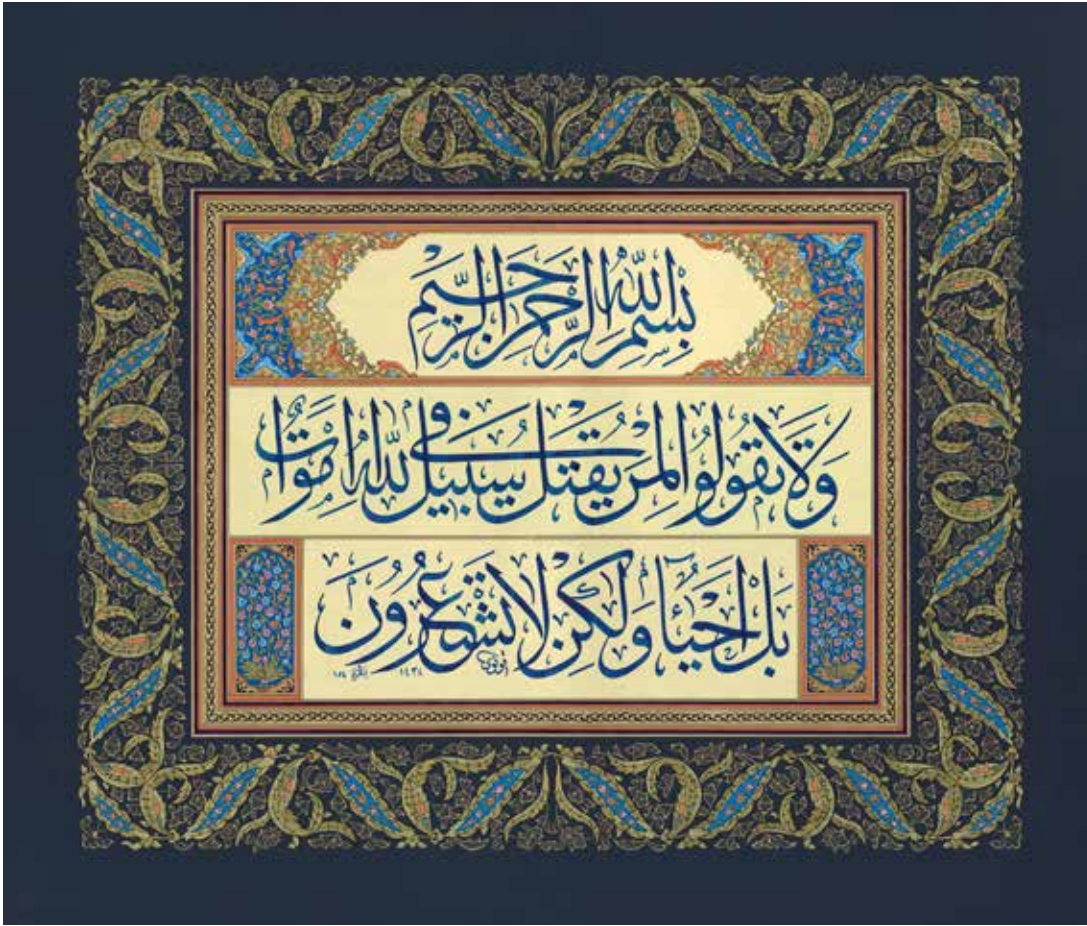 بِسْمِ اللّٰهِ الرَّحْمٰنِ الرَّحِيْمِ
وَلَا تَقُولُوا لِمَنْ يُقْتَلُ فِي سَبِيلِ اللّٰهِ اَمْوَاتٌ
بَلْ اَحْيَآءٌ وَلٰكِنْ لَا تَشْعُرُونَ
١٥٤ ١٤٣٤